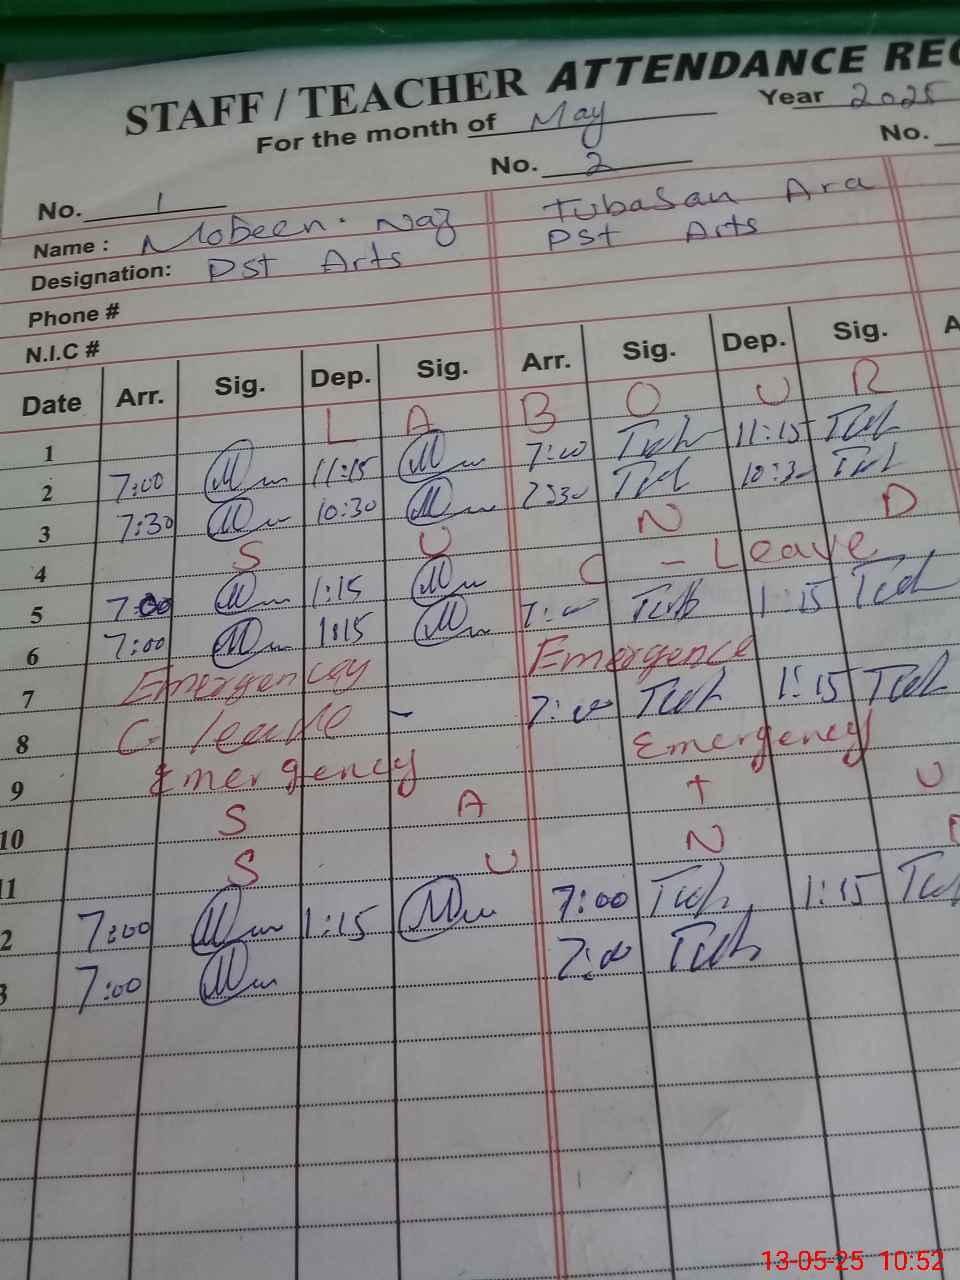 STAFF / TEACHER ATTENDANCE REC
For the month of May Year 2025
No. 1 No. 2 No.
Name : Mobeen. Naz Tubasan Ara
Designation: Pst Arts Pst Arts
Phone #
N.I.C #
Date Arr. Sig. Dep. Sig. Arr. Sig. Dep. Sig. A
1 L A B O U R
2 7:00 11:15 7:00 11:15
3 7:30 10:30 7:30 10:30
4 S U N D
5 7:00 1:15 C - Leave
6 7:00 1:15 7:00 1:15
7 Emergency Emergence
8 C- leave - 7:00 1:15
9 Emergency Emergency
10 S A t U
11 S U N
2 7:00 1:15 7:00 1:15
3 7:00 7:00
13-05-25 10:52